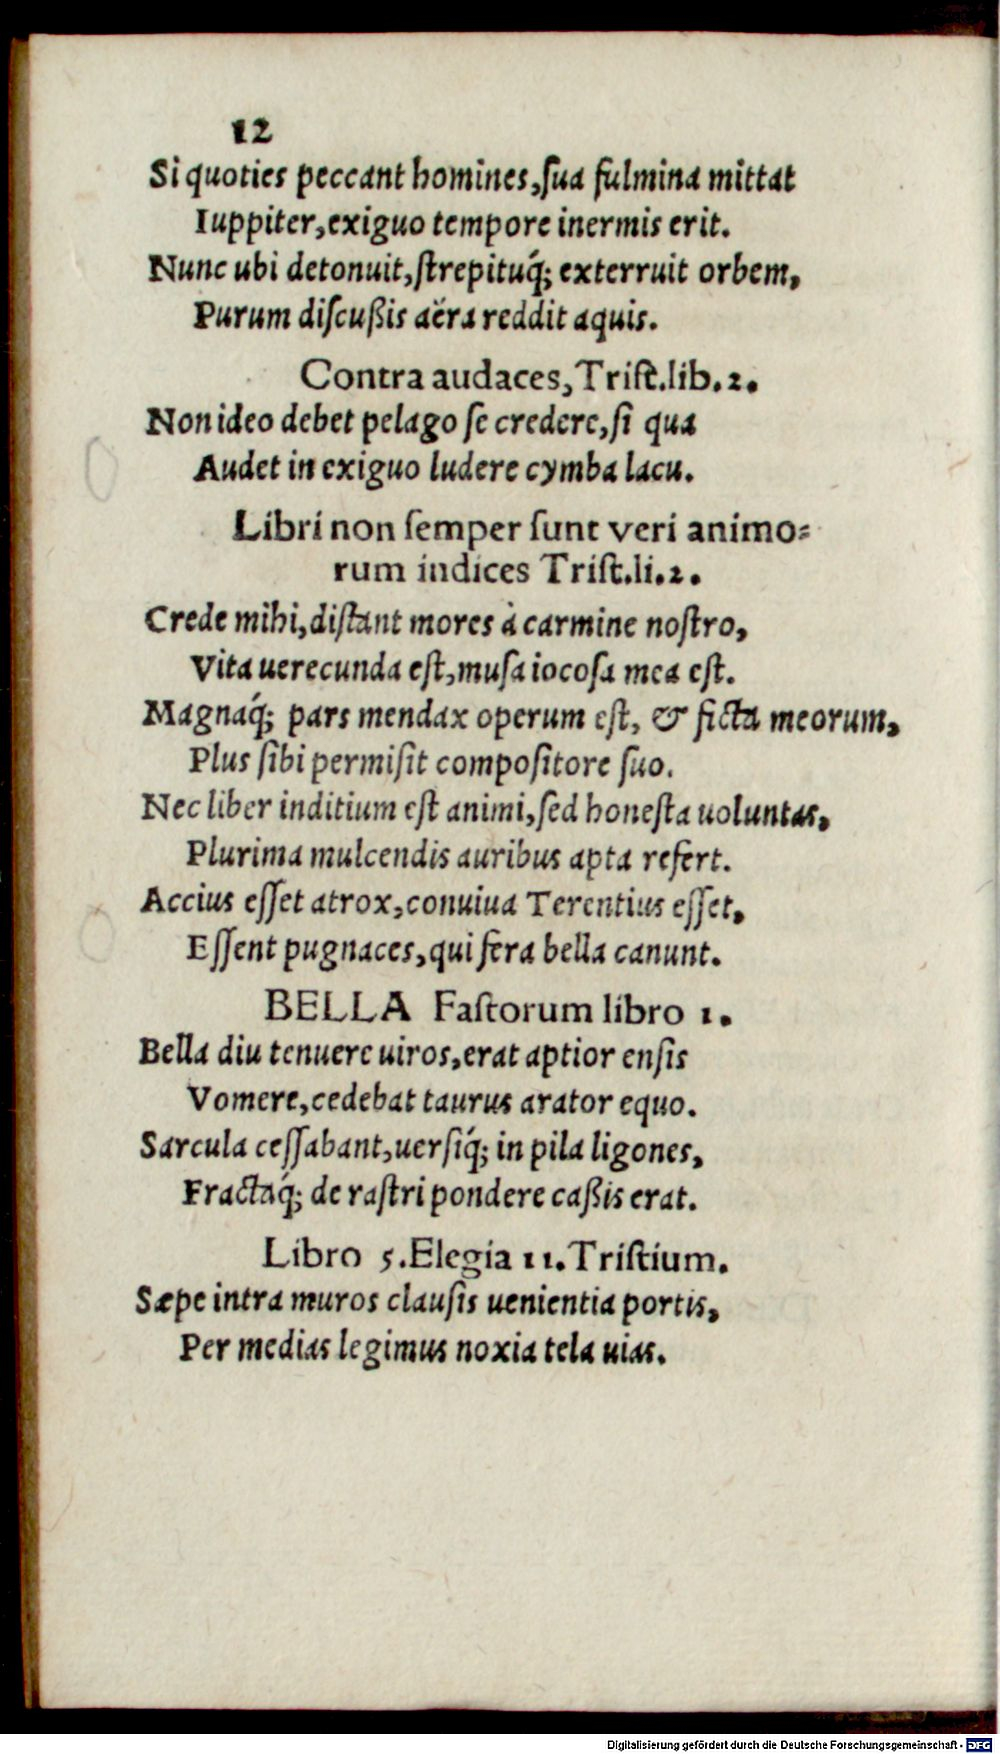 12
Si quoties peccant homines, ſua fulmina mittat
Iuppiter, exiguo tempore inermis erit.
Nunc ubi detonuit, ſtrepituq́; exterruit orbem,
Purum diſcußis aëra reddit aquis.
Contra audaces, Triſt. lib. 2.
Non ideo debet pelago ſe credere, ſi qua
Audet in exiguo ludere cymba lacu.
Libri non ſemper ſunt veri animo⸗
rum indices Triſt. li. 2.
Crede mihi, diſtant mores à carmine noſtro,
Vita uerecunda eſt, muſa iocoſa mea eſt.
Magnaq́; pars mendax operum eſt, & ficta meorum,
Plus ſibi permiſit compoſitore ſuo.
Nec liber inditium eſt animi, ſed honeſta uoluntas,
Plurima mulcendis auribus apta refert.
Accius eſſet atrox, conuiua Terentius eſſet,
Eſſent pugnaces, qui fera bella canunt.
BELLA Faſtorum libro 1.
Bella diu tenuere uiros, erat aptior enſis
Vomere, cedebat taurus arator equo.
Sarcula ceſſabant, uerſiq́; in pila ligones,
Fractaq́; de raſtri pondere caßis erat.
Libro 5. Elegia 11. Triſtium.
Sæpe intra muros clauſis uenientia portis,
Per medias legimus noxia tela uias.
Digitalisierung gefördert durch die Deutsche Forschungsgemeinschaft - DFG